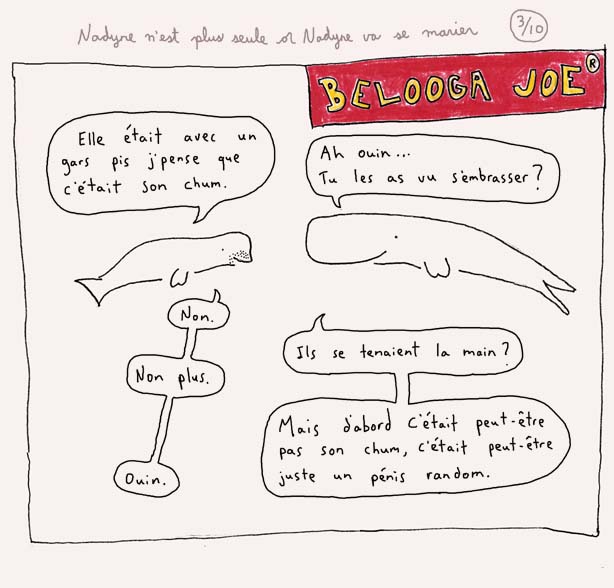 Nadyne n'est plus seule or Nadyne va se marier
3/10
BELOOGA JOE ®
Elle était avec un
gars pis j'pense que
c'était son chum.
Ah ouin...
Tu les as vu s'embrasser?
Non.
Ils se tenaient la main?
Non plus.
Mais d'abord c'était peut-être
pas son chum, c'était peut-être
juste un pénis random.
Ouin.